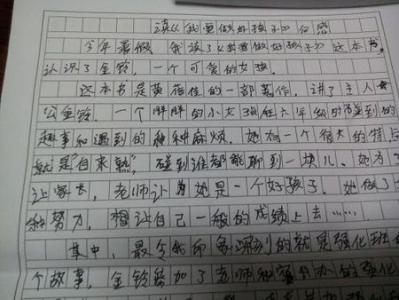 读《我要做好孩子》有感
今年暑假，我读了《我要做好孩子》这本书，
认识了金铃，一个可爱的女孩。
这本书是黄蓓佳的一部著作，讲了主人
公金铃，一个胖胖的小女孩在六年级时碰到的
趣事和遇到的种种麻烦。她有一个很大的特点
就是"自来熟"，碰到谁都能聊到一块儿。她为了
让家长，老师认为她是一个好孩子。她做了
努力，想让自己一般的成绩上去……
其中，最令我印象深刻的就是强化班
个故事。金铃参加了老师 办的强化